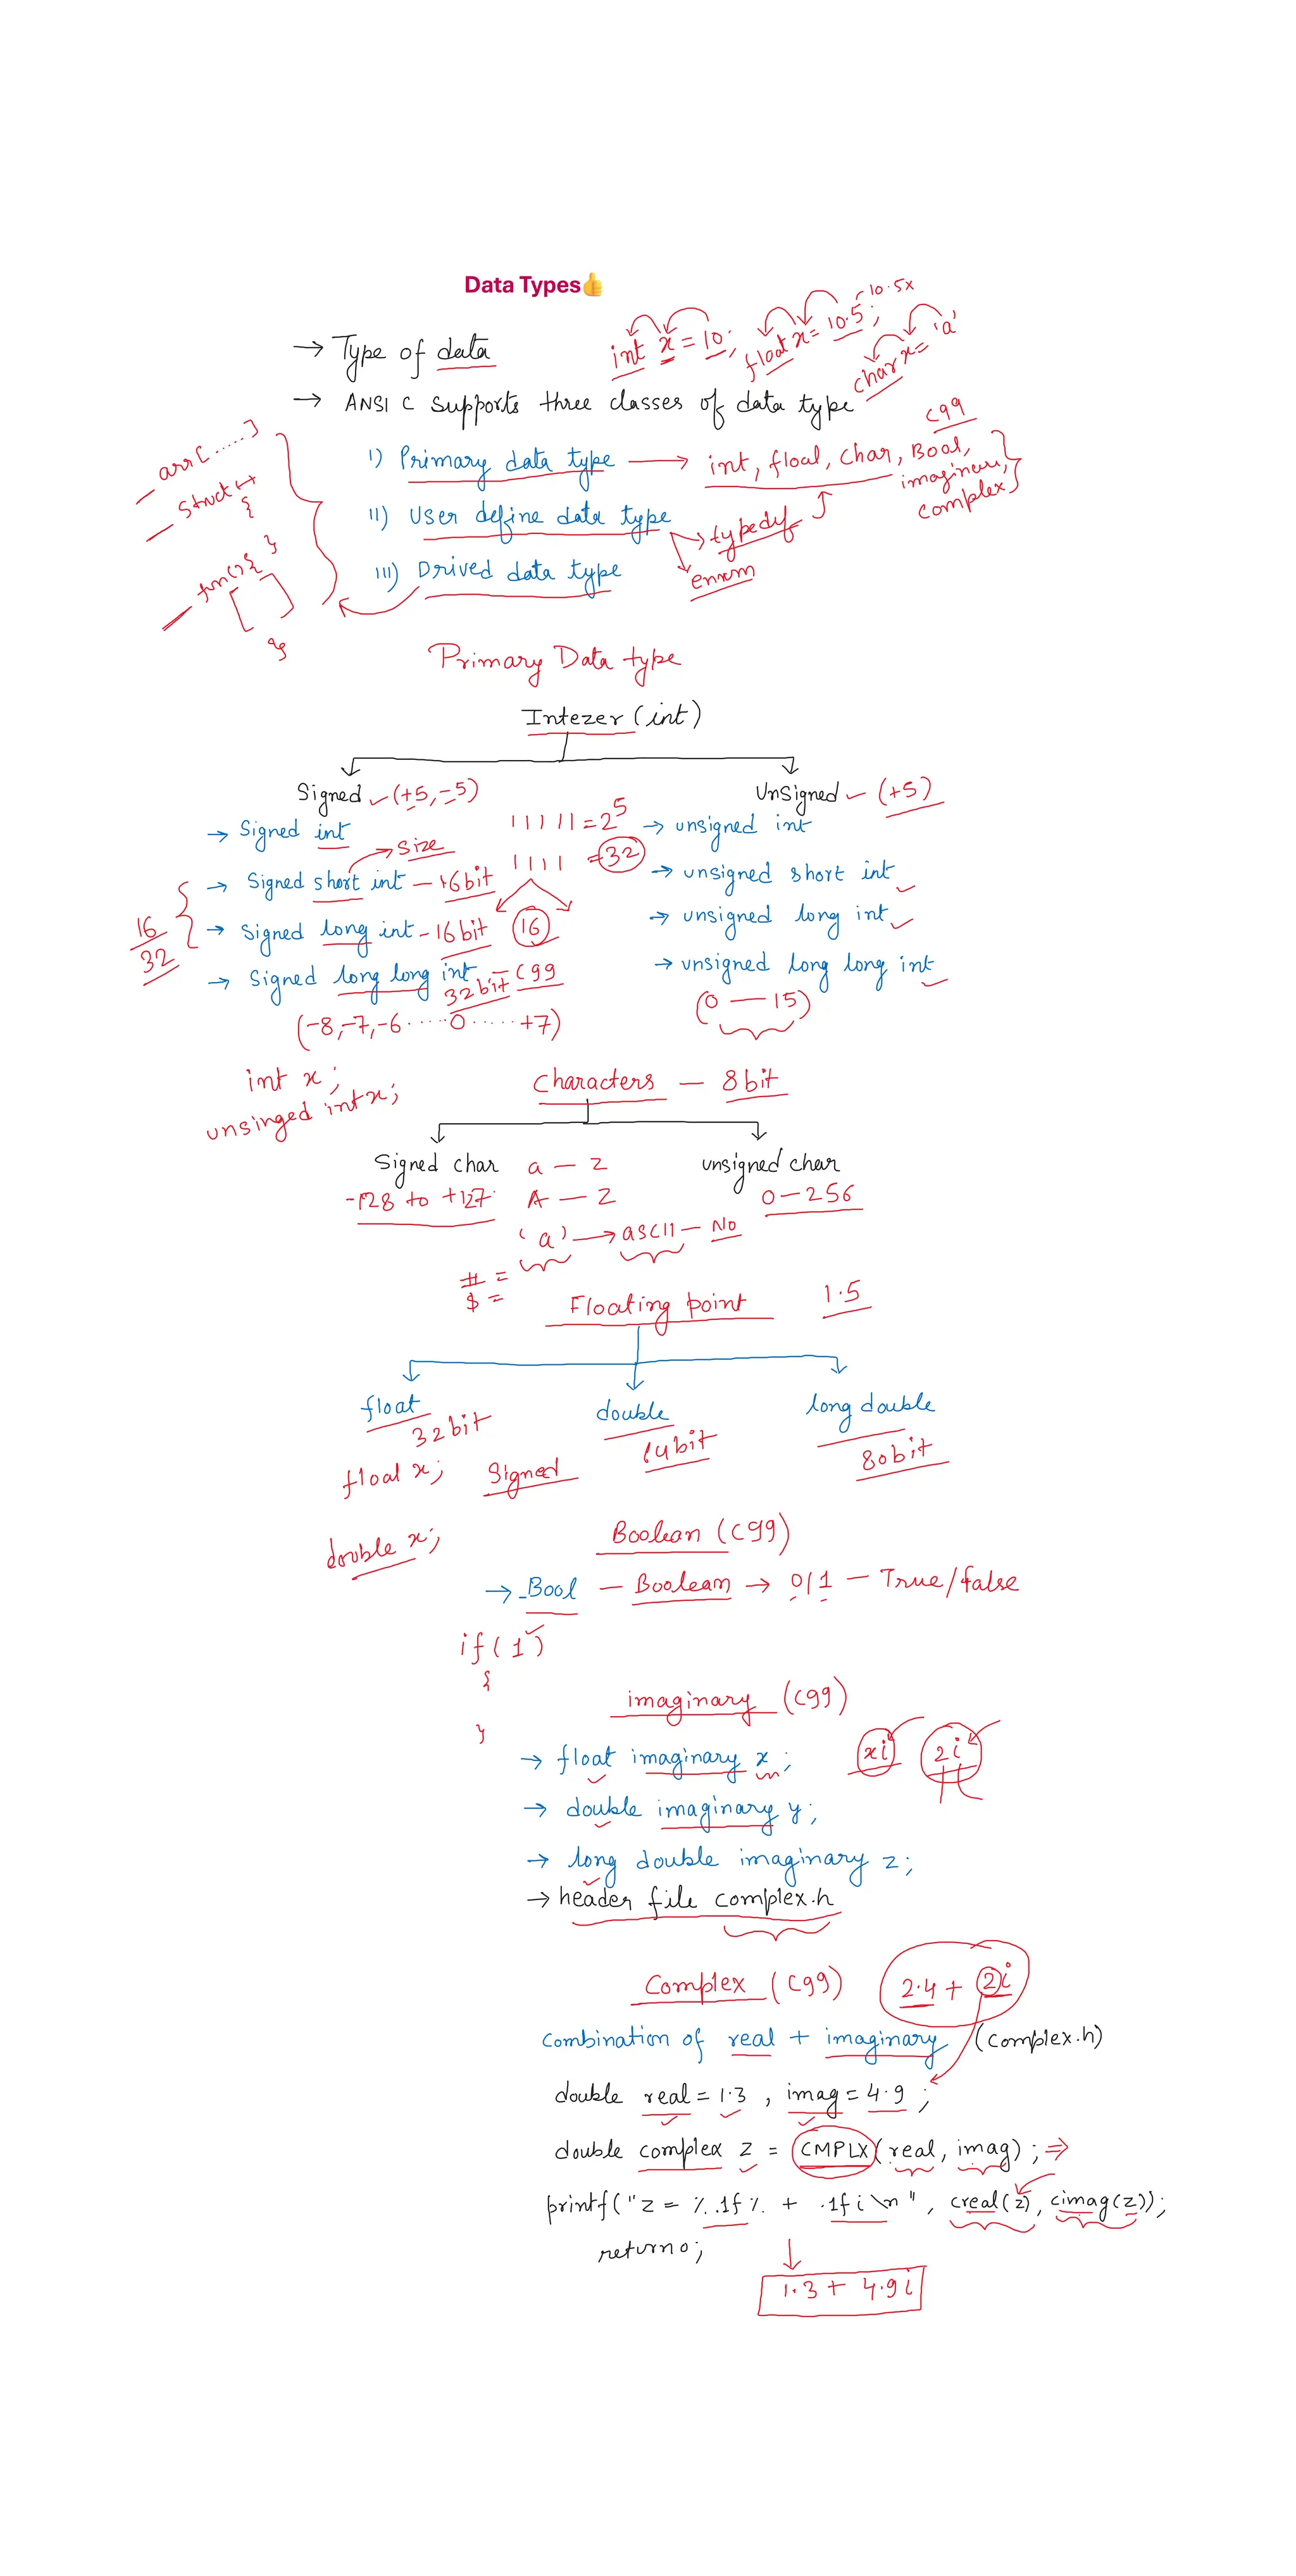 Data Types👍
→ Type of data
int x = 10; float x = 10.5; 10.5x
char x = 'a'
→ ANSI C supports three classes of data type
C99
I) Primary data type → int, floal, char, Bool,
imaginary,
complex
II) User define data type → typedef
enum
III) Drived data type
arr[.....]
struct
{
}
fun(){
}
Primary Data type
Intezer (int)
Signed (+5, -5)
UnSigned - (+5)
→ Signed int
→ size
11111 = 2⁵
1111 = 32
→ unsigned int
→ Signed short int - 16bit
→ unsigned short int
16
32
→ Signed long int - 16bit 16
→ unsigned long int
→ Signed long long int - C99
32bit
→ unsigned long long int
(-8, -7, -6 ..... 0 ..... +7)
(0 — 15)
int x;
unsinged int x;
Characters — 8bit
Signed char a — z
unsigned char
-128 to +127 A — Z
0 - 256
'a' → ascii — No
# =
$ =
Floating point 1.5
float
32bit
double
64bit
long double
80bit
floal x; Signed
double x;
Boolean (C99)
→ _Bool — Boolean → 0/1 — True/false
if(1)
{
}
imaginary (C99)
→ float imaginary x; xi 2i
→ double imaginary y;
→ long double imaginary z;
→ header file complex.h
Complex (C99) 2.4 + 2i
Combination of real + imaginary (complex.h)
double real = 1.3, imag = 4.9;
double complex z = CMPLX(real, imag); ⇒
printf("z = %.1f % + .1f i\n", creal(z), cimag(z));
return 0;
1.3 + 4.9i